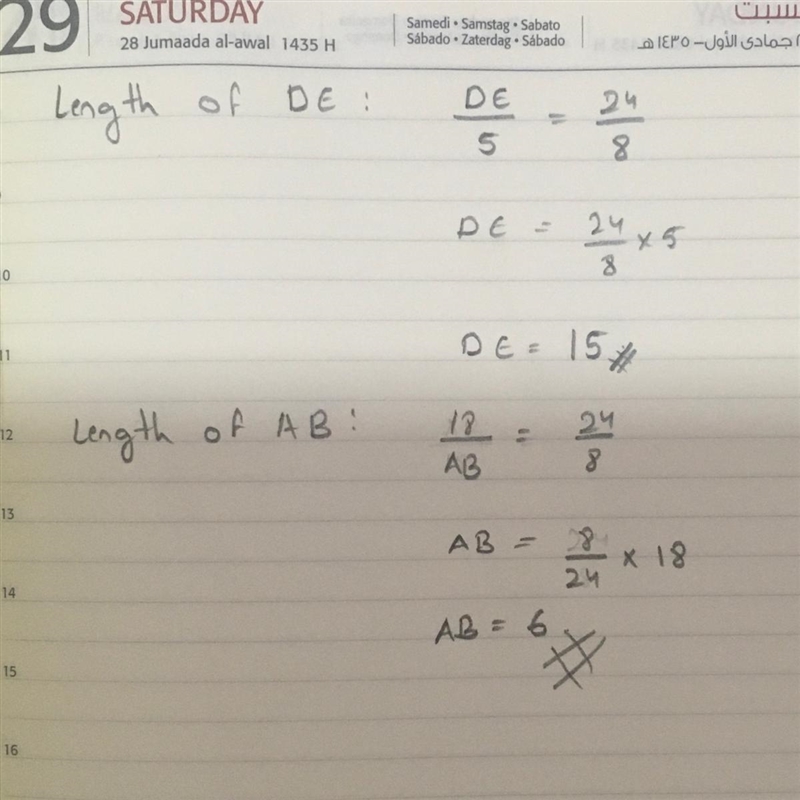 29 SATURDAY
28 Jumaada al-awal 1435 H
Samedi • Samstag • Sabato
Sábado • Zaterdag • Sábado
جمادى الأول – ١٤٣٥ هـ
Length of DE : DE/5 = 24/8
DE = 24/8 × 5
10
DE = 15
11
Length of AB : 18/AB = 24/8
12
13
AB = 8/24 × 18
14
AB = 6
15
16